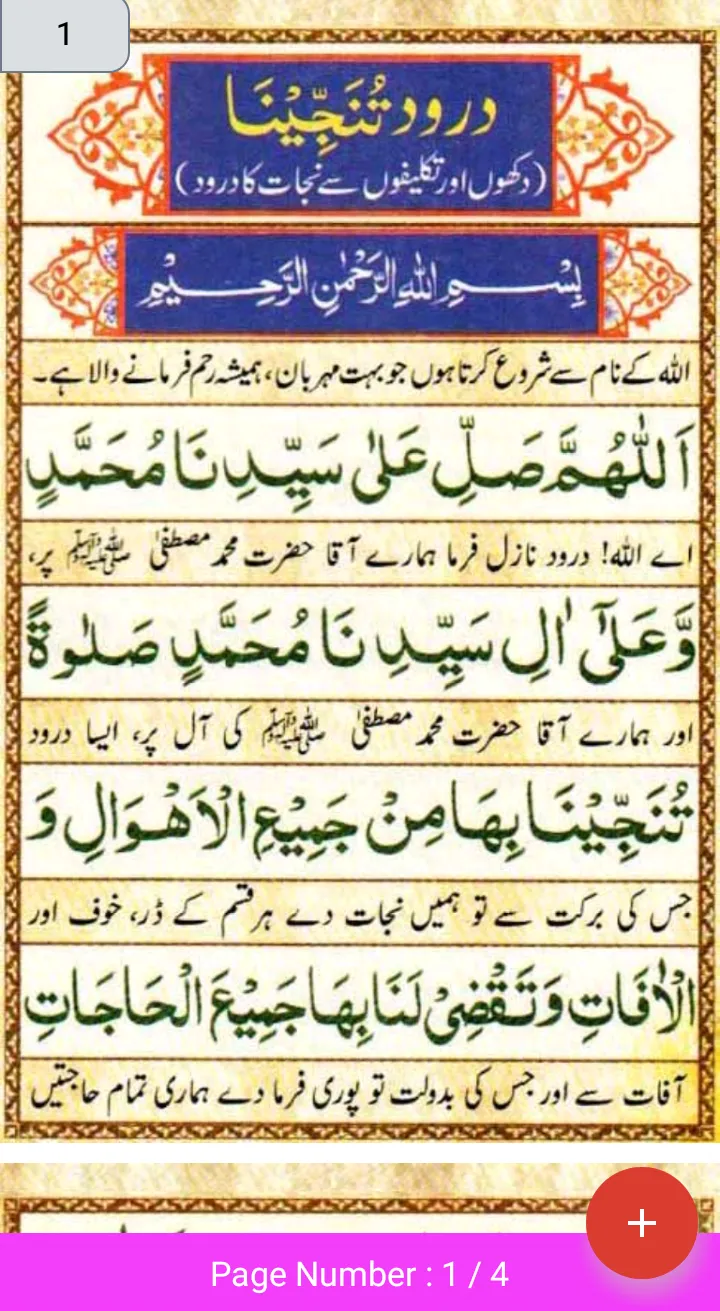 1
درود تُنَجِّیْنَا
(دکھوں اور تکلیفوں سے نجات کا درود)
بِسْمِ اللهِ الرَّحْمٰنِ الرَّحِیْمِ
اللہ کے نام سے شروع کرتا ہوں جو بہت مہربان، ہمیشہ رحم فرمانے والا ہے۔
اَللّٰهُمَّ صَلِّ عَلٰى سَيِّدِنَا مُحَمَّدٍ
اے اللہ! درود نازل فرما ہمارے آقا حضرت محمد مصطفیٰ ﷺ پر،
وَّعَلٰٓى اٰلِ سَيِّدِنَا مُحَمَّدٍ صَلٰوةً
اور ہمارے آقا حضرت محمد مصطفیٰ ﷺ کی آل پر، ایسا درود
تُنَجِّيْنَا بِهَا مِنْ جَمِيْعِ الْاَهْوَالِ وَ
جس کی برکت سے تو ہمیں نجات دے ہر قسم کے ڈر، خوف اور
الْاٰفَاتِ وَتَقْضِىْ لَنَا بِهَا جَمِيْعَ الْحَاجَاتِ
آفات سے اور جس کی بدولت تو پوری فرما دے ہماری تمام حاجتیں
+
Page Number : 1 / 4